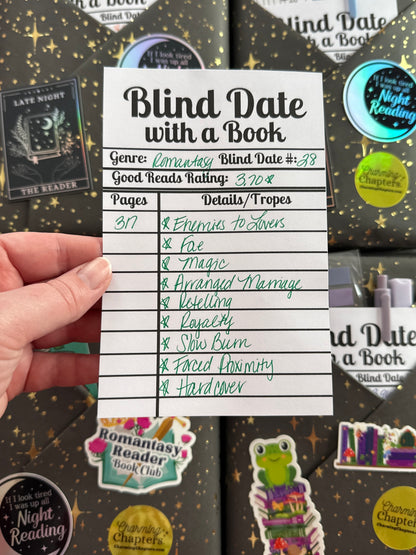 Blind Date
with a Book
Blind Date
with a Book
If I look tired
I was up all
Night
Reading
LATE NIGHT
THE READER
Blind Date
with a Book
Genre: Romantasy Blind Date #: 28
Good Reads Rating: 3.70
Pages Details/Tropes
317 Enemies to Lovers
Fae
Magic
Arranged Marriage
Retelling
Royalty
Slow Burn
Forced Proximity
Hardcover
If I look tired
I was up all
Night
Reading
Charming
Chapters
Blind Date
with a Book
Blind Date
Romantasy
Reader
Book Club
If I look tired
I was up all
Night
Reading
Charming
Chapters
CharmingChapters.com
Charming
Chapters
CharmingChapters.com